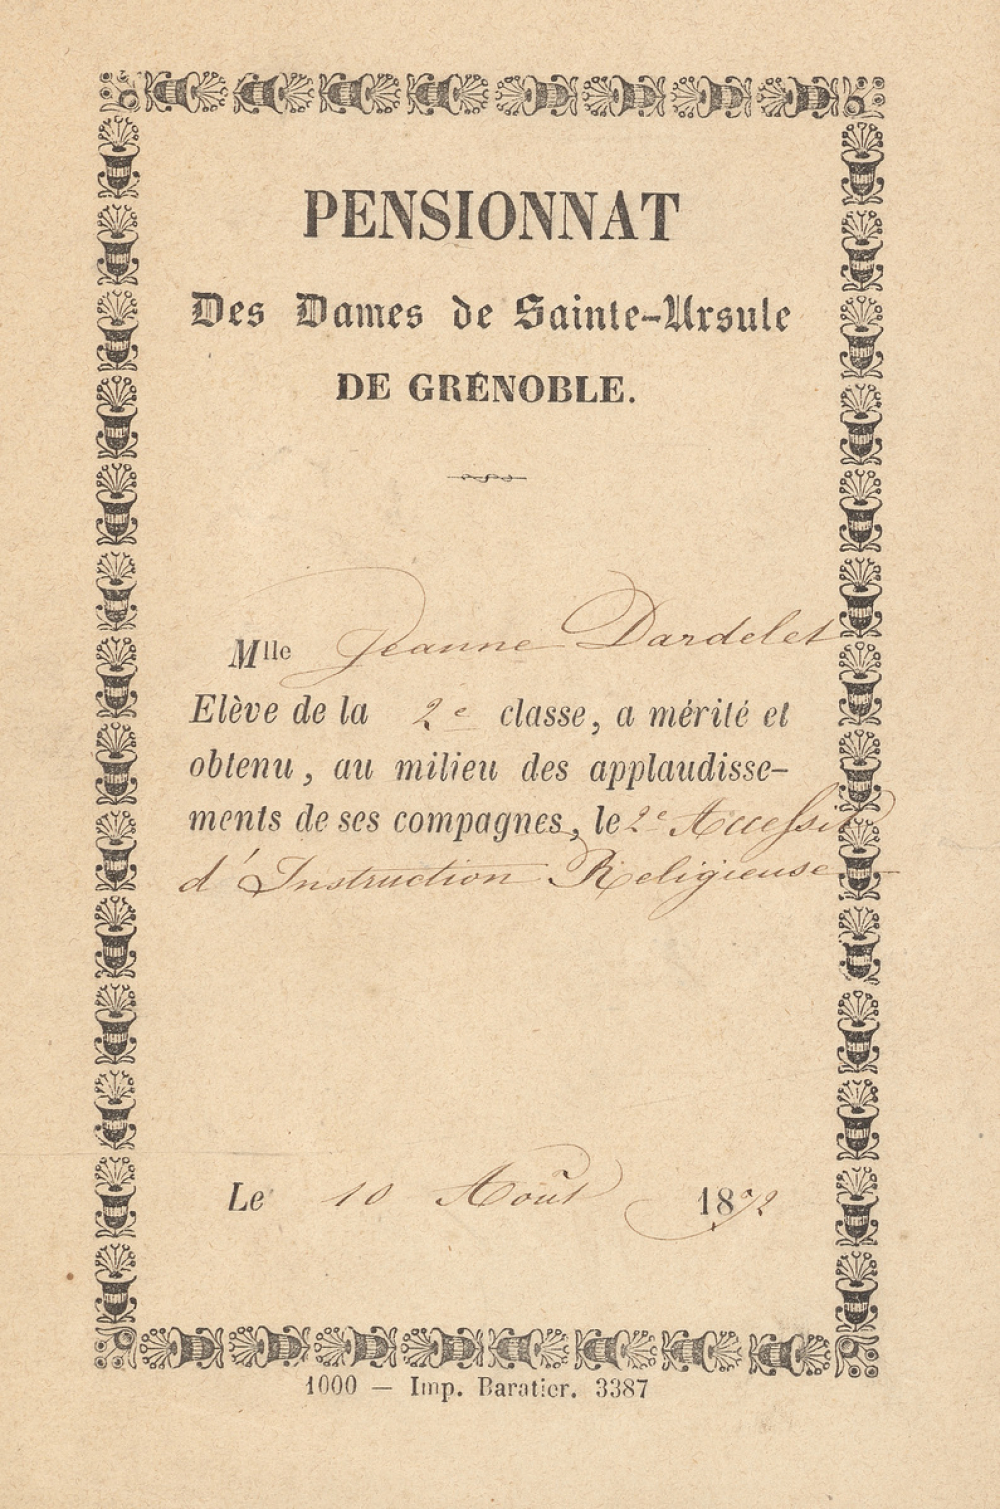 PENSIONNAT
Des Dames de Sainte-Ursule
DE GRÉNOBLE.
Mlle Jeanne Dardelet
Elève de la 2e classe, a mérité et
obtenu, au milieu des applaudisse-
ments de ses compagnes, le 2e Accessit
d'Instruction Religieuse
Le 10 Août 1872
1000 — Imp. Baratier. 3387